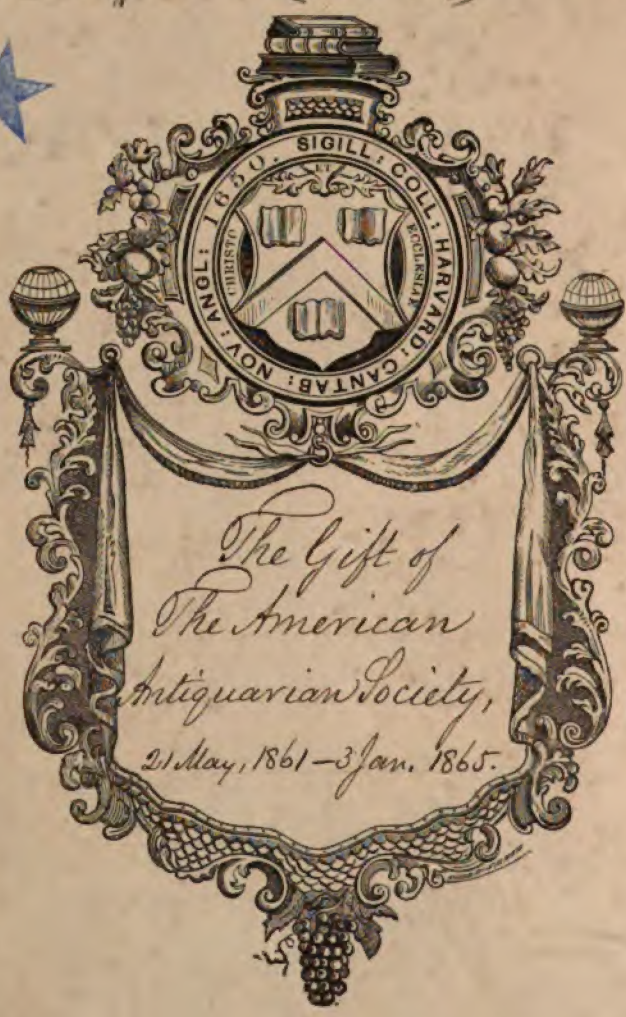 SIGILL: COLL: HARVARD: CANTAB: NOV: ANGL: 1650.
CHRISTO
ET
ECCLESIÆ
The Gift of
The American
Antiquarian Society,
21 May, 1861 – 3 Jan. 1865.